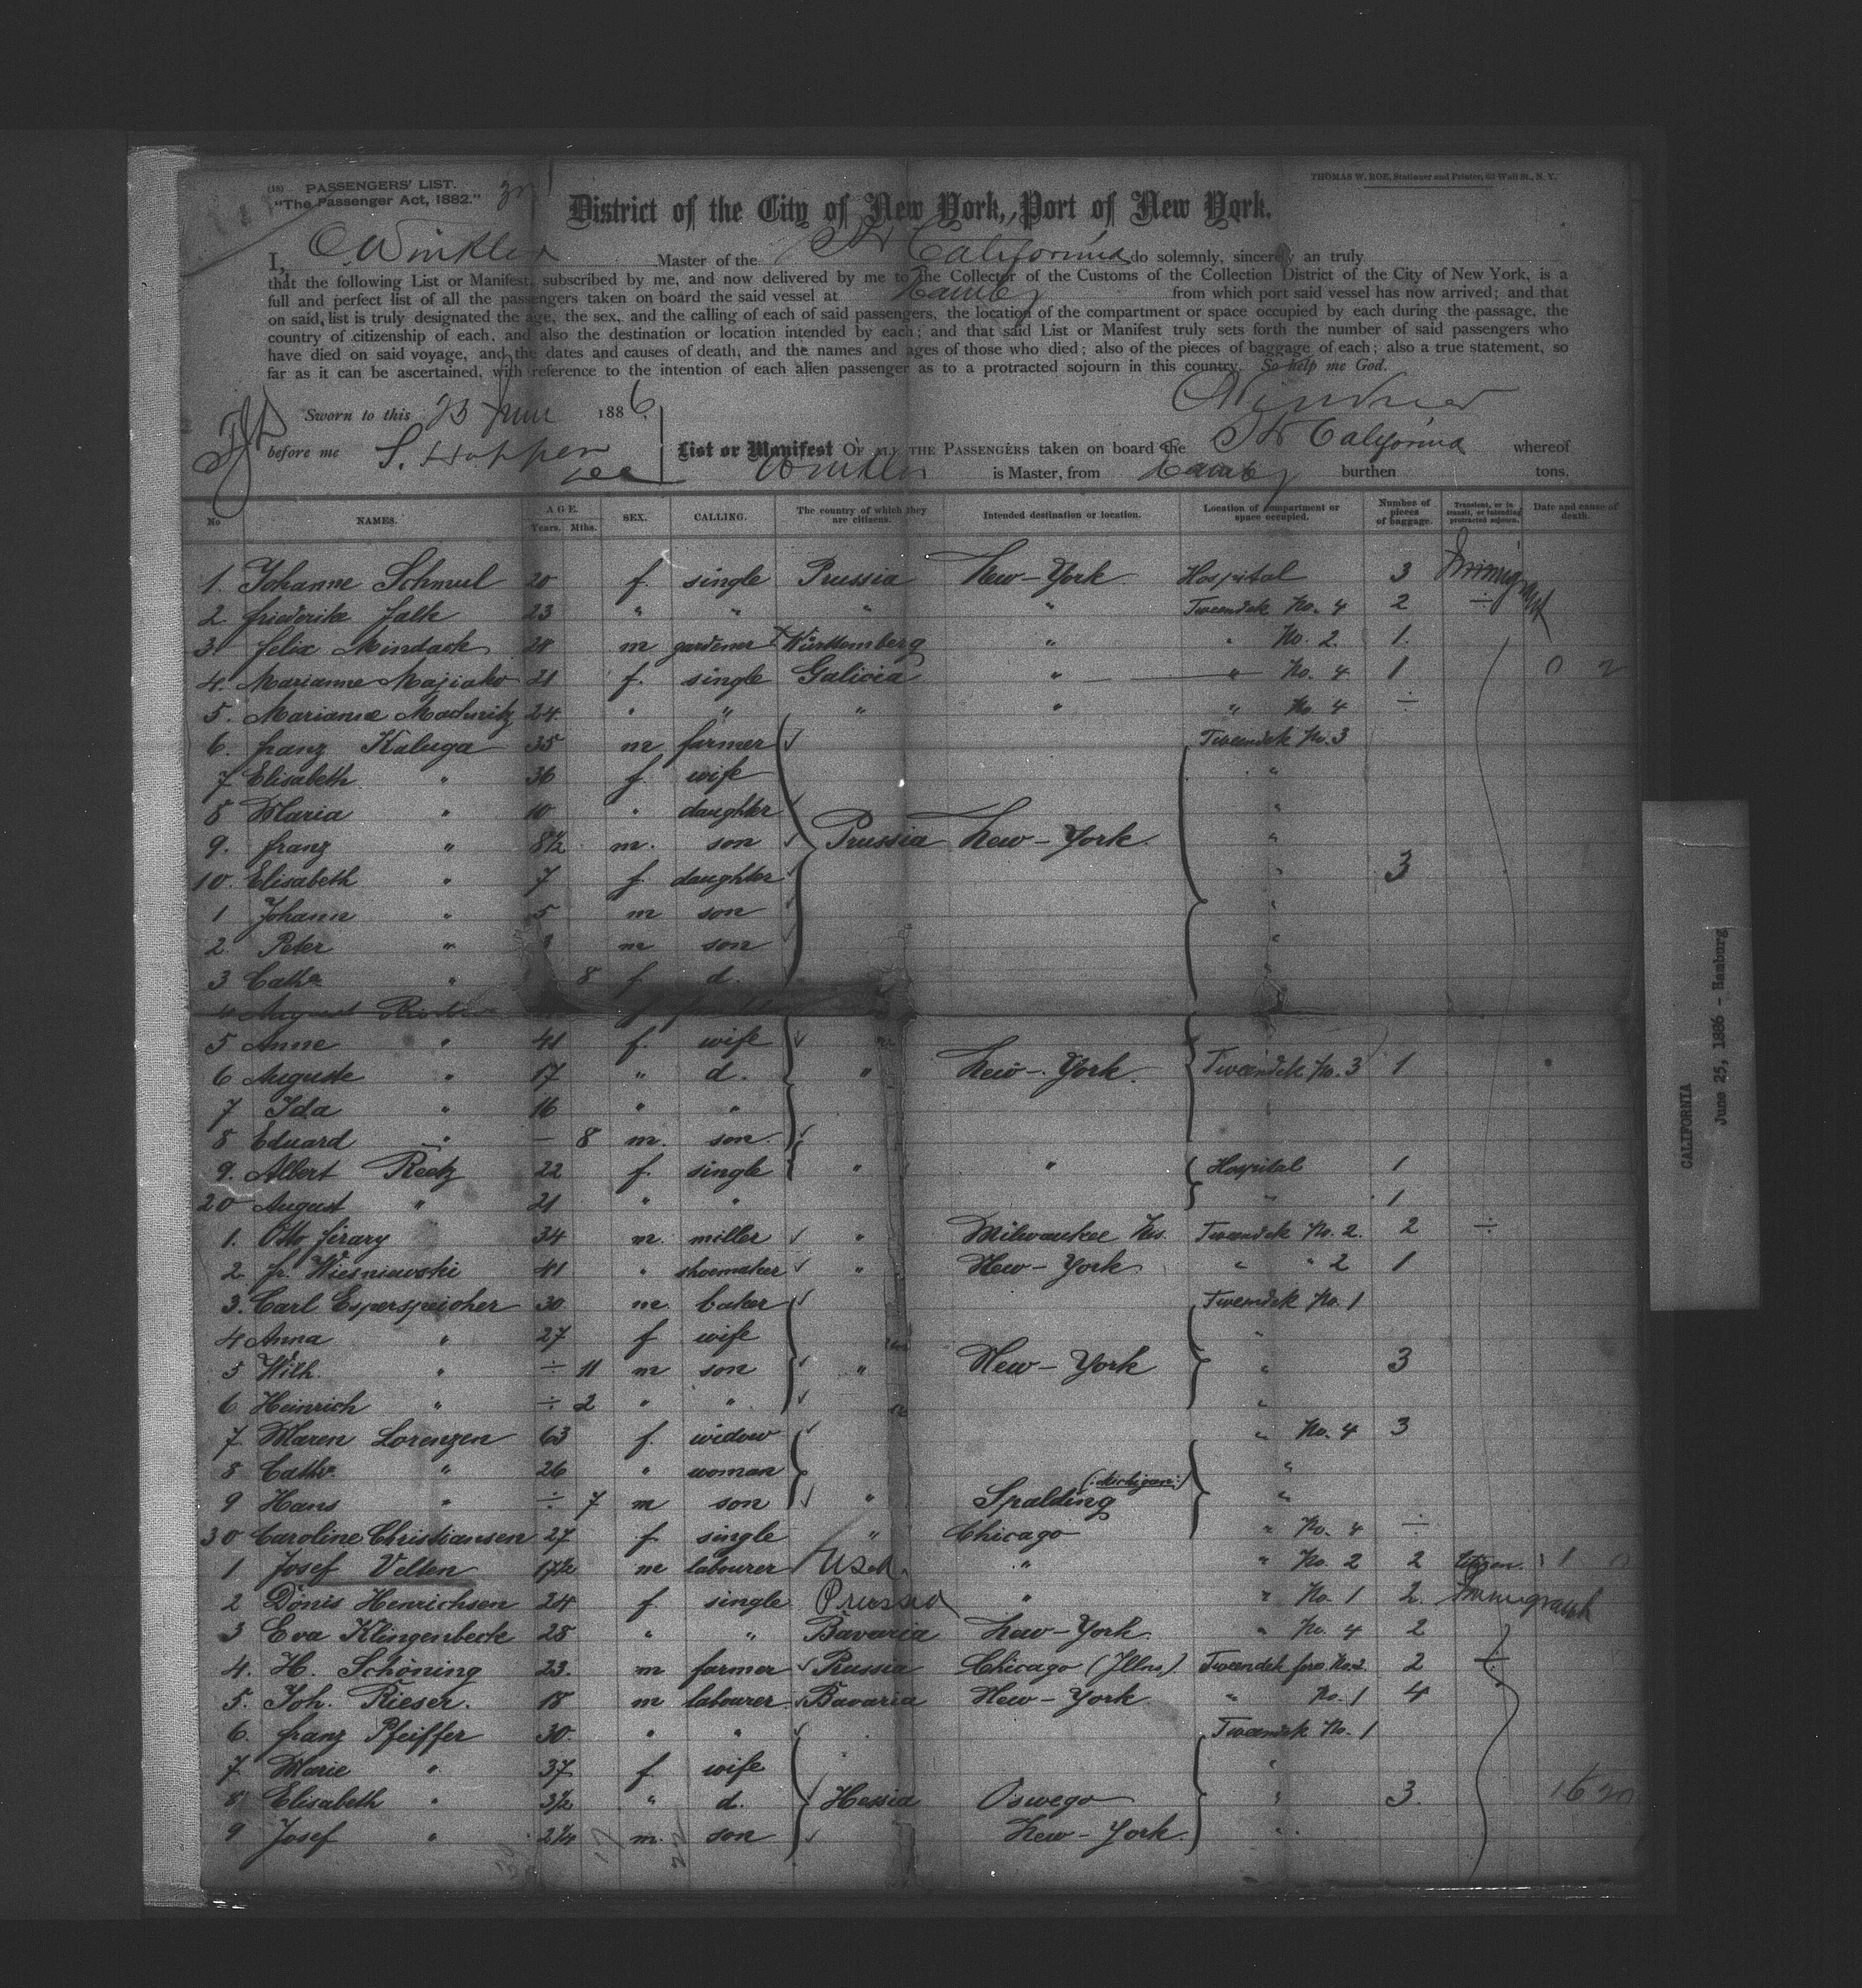 (18) PASSENGERS' LIST.
"The Passenger Act, 1882."
THOMAS W. ROE, Stationer and Printer, 63 Wall St., N. Y.
District of the City of New York, Port of New York.
I, C. Winkler Master of the Str California do solemnly, sincerely an truly
that the following List or Manifest, subscribed by me, and now delivered by me to the Collector of the Customs of the Collection District of the City of New York, is a
full and perfect list of all the passengers taken on board the said vessel at Hambg from which port said vessel has now arrived; and that
on said list is truly designated the age, the sex, and the calling of each of said passengers, the location of the compartment or space occupied by each during the passage, the
country of citizenship of each, and also the destination or location intended by each; and that said List or Manifest truly sets forth the number of said passengers who
have died on said voyage, and the dates and causes of death, and the names and ages of those who died; also of the pieces of baggage of each; also a true statement, so
far as it can be ascertained, with reference to the intention of each alien passenger as to a protracted sojourn in this country. So help me God.
CWinkler
Sworn to this 25 June 1886
before me S. Hopper
List or Manifest OF ALL THE PASSENGERS taken on board the Str California whereof
Winkler is Master, from Hambg burthen tons.
No NAMES. AGE. Years. Mths. SEX. CALLING. The country of which they are citizens. Intended destination or location. Location of compartment or space occupied. Number of pieces of baggage. Transient, or in transit, or intending protracted sojourn. Date and cause of death.
1. Johanne Schmul 20 f. single Prussia New-York Hospital 3 Immigrant
2. Friederike Falk 23 " " " " Tweendek No. 4 2 ÷
3. Felix Mindack 28 m gardener Württemberg " " No. 2. 1.
4. Marianne 21 f. single Galicia " " No. 4 1
5. Marianne 24 " " " " " No. 4 ÷
6. Franz Kaluga 35 m farmer Tweendek No. 3
7 Elisabeth " 36 f wife "
8 Maria " 10 " daughter "
9. Franz " 8½ m. son Prussia New-York "
10. Elisabeth " 7 f daughter " 3
1 Johann " 5 m son "
2. Peter " m son "
3 Catha " 8 f d. "
4 August
5 Anne " 41 f. wife
6 Auguste " 17 " d. " New-York. Tweendek No. 3 1
7 Ida " 16 " "
8 Eduard " — 8 m. son
9. Albert Reetz 22 f. single " " Hospital 1
20 August " 21 " " " 1
1. Otto Firary 34 m. miller " Milwaukee Wis. Tweendek No. 2. 2 ÷
2. Fr. Wiesniewski 41 " shoemaker " New-York " " 2 1
3. Carl Esperspeicher 30 m. baker Tweendek No. 1
4 Anna " 27 f wife "
5 Wilh. " ÷ 11 m son " New-York " 3
6 Heinrich " ÷ 2 " " "
7. Maren Lorenzen 63 f. widow " No. 4 3
8 Cathr. " 26 " woman "
(:Michigan:)
9 Hans " ÷ 7 m son " Spalding "
30 Caroline Christiansen 27 f. single " Chicago " No. 4 ÷
1 Josef Velten 17½ m labourer USA. " " No. 2 2 Citizen.
2 Dönis Henrichsen 24 f single Prussia " " No. 1 2. Immigrant
3 Eva Klingenbeck 28 " " Bavaria New-York. " No. 4 2
4. H. Schöning 23. m farmer Prussia Chicago (Illns). Tweendek fore No. 2. 2 ÷
5. Joh. Rieser. 18 m labourer Bavaria New-York " No. 1 4
6. Franz Pfeiffer 30. " " Tweendek No. 1
7. Marie " 37 f wife "
8 Elisabeth " 3½ " d. Hessia Oswego " 3.
9 Josef " 2¼ m. son New-York. "
CALIFORNIA
June 25, 1886 - Hamburg